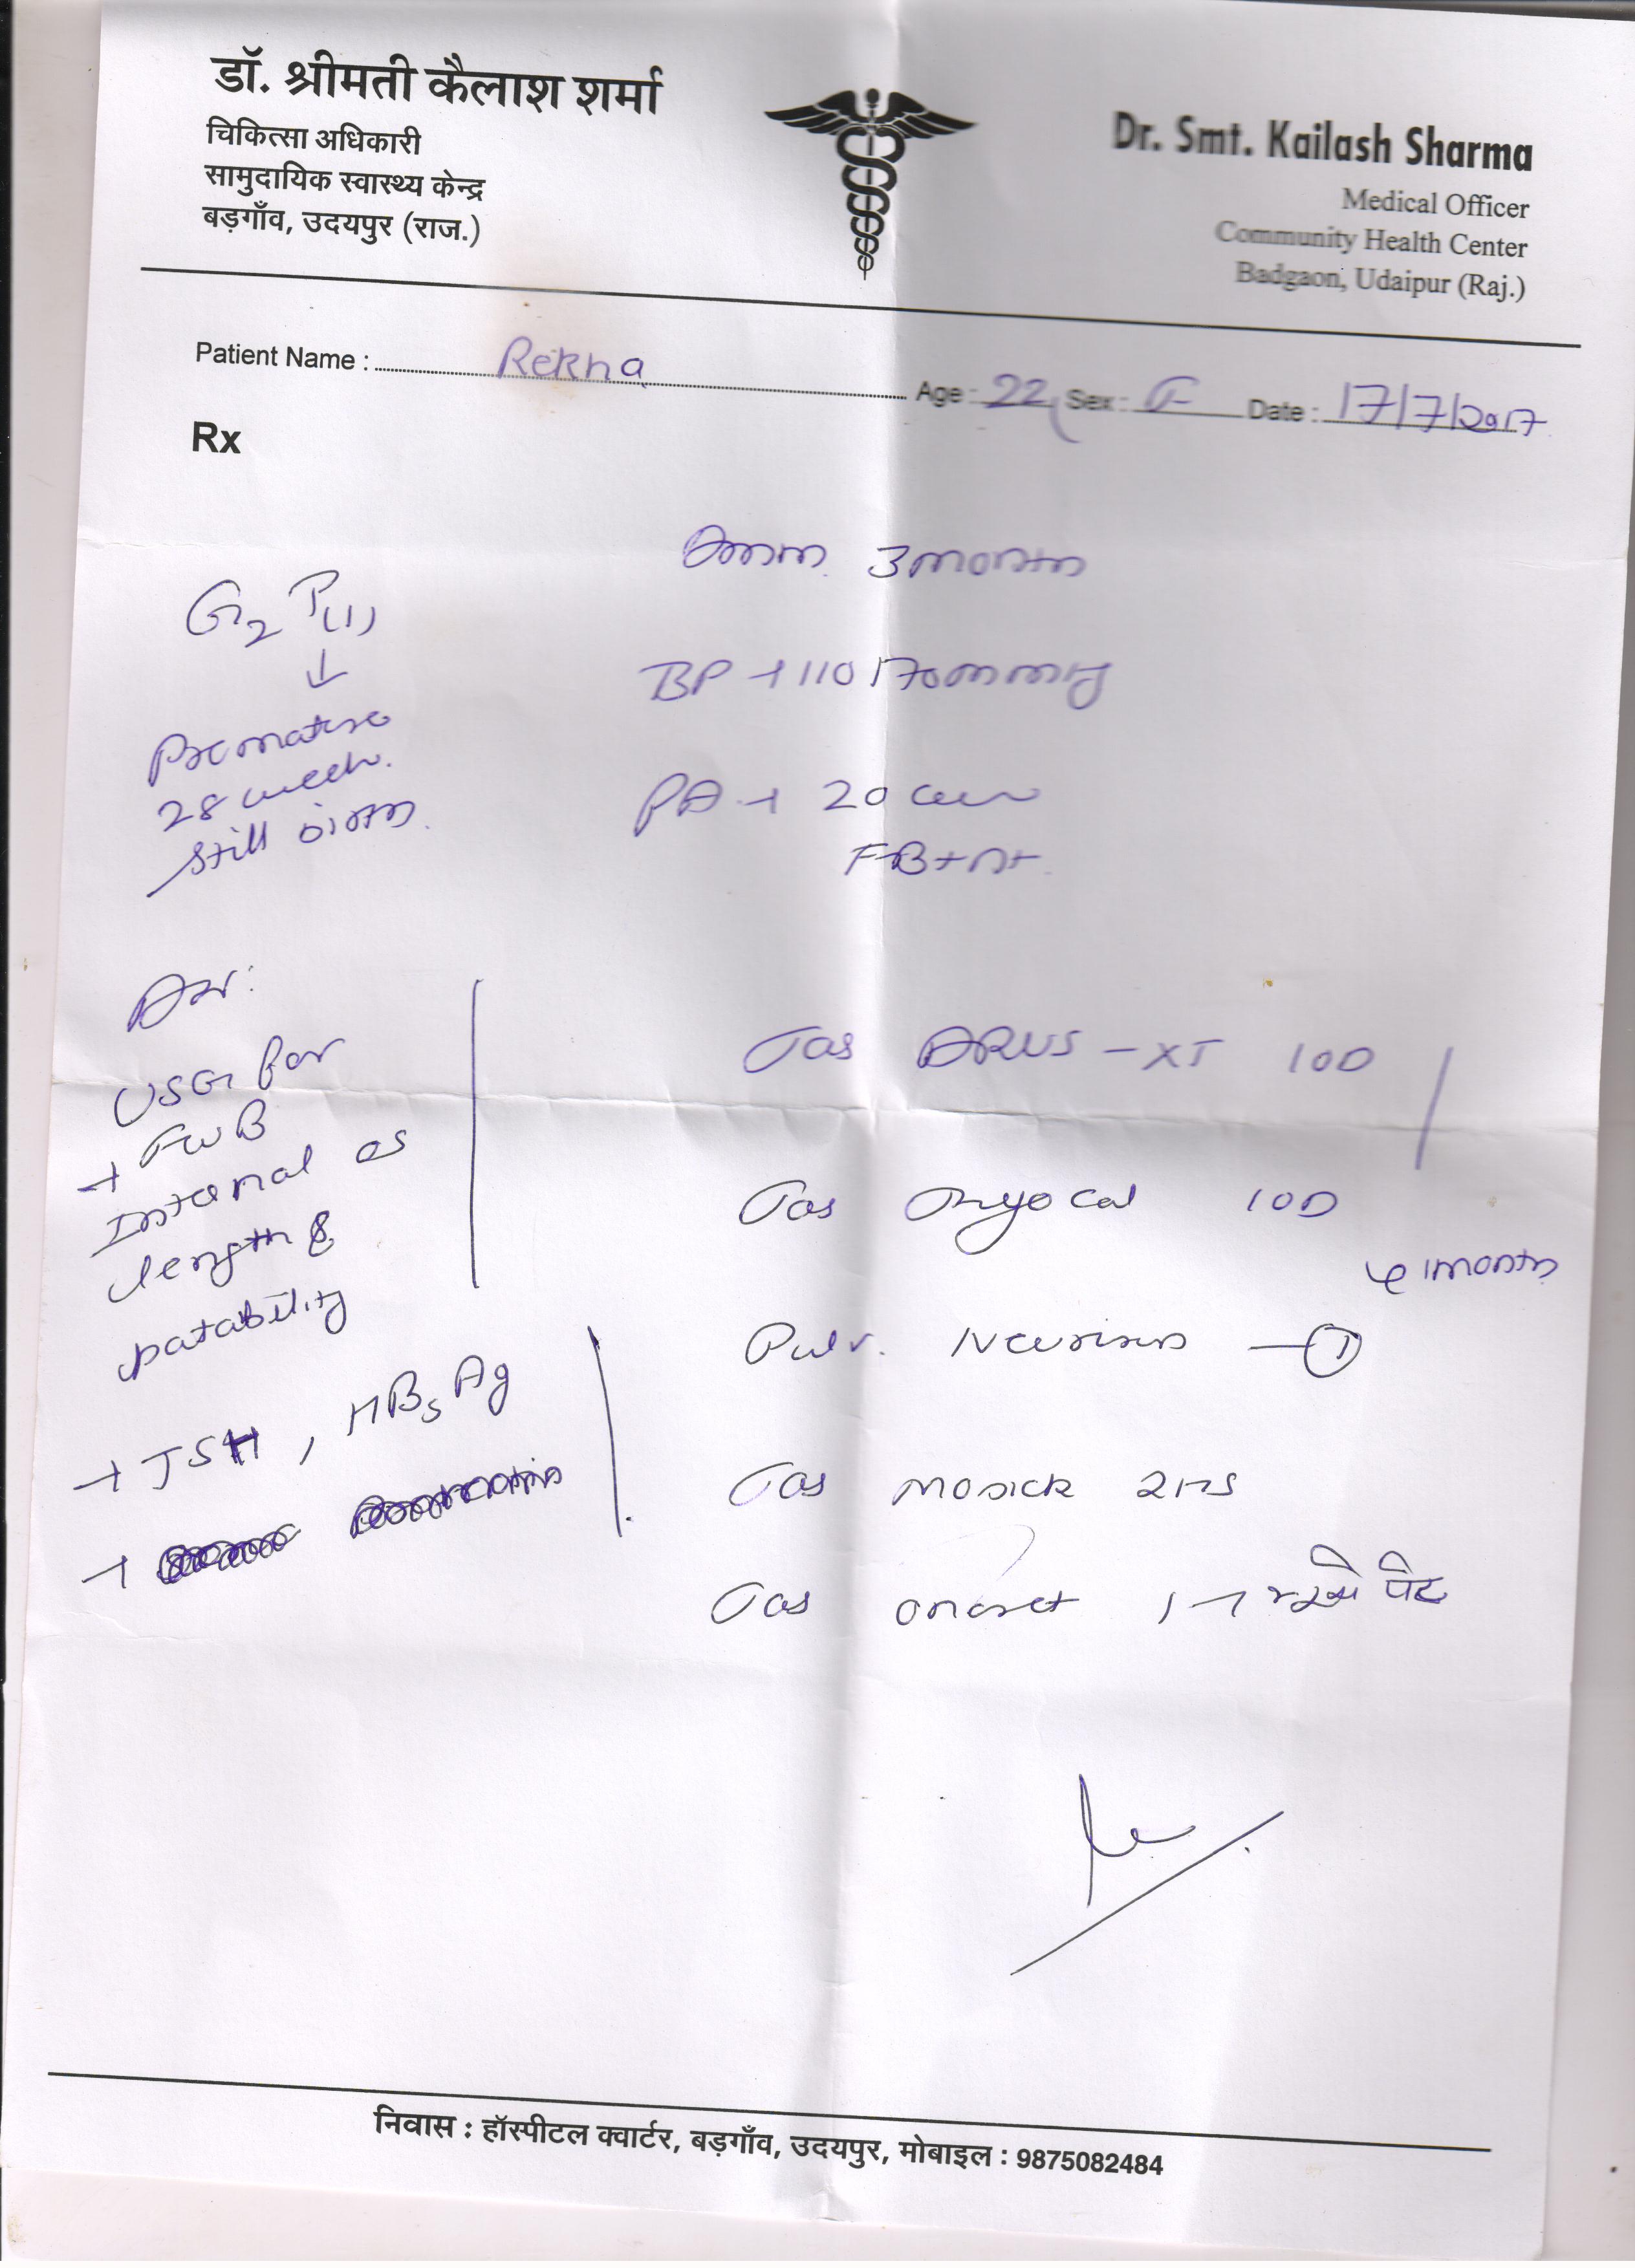 डॉ. श्रीमती कैलाश शर्मा
चिकित्सा अधिकारी
सामुदायिक स्वास्थ्य केन्द्र
बड़गाँव, उदयपुर (राज.)
Dr. Smt. Kailash Sharma
Medical Officer
Community Health Center
Badgaon, Udaipur (Raj.)
Patient Name : Rekha Age : 22 Sex : F Date : 17/7/2017
Rx
3 month
G2 P(1)
↓
Premature
28 week.
still birth.
BP → 110/70mmHg
PA → 20
Adv:
USG for
→ FWB
Internal os
length &
patability
→ TSH, HBsAg
Tab - XT 10D
Tab cal 10D
1 month
Pulv. — 1
Tab 2HS
Tab 1 → पेट
निवास : हॉस्पीटल क्वार्टर, बड़गाँव, उदयपुर, मोबाइल : 9875082484